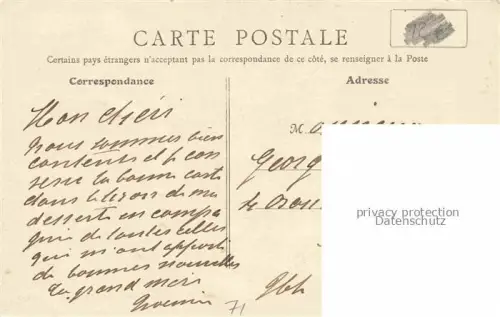 CARTE POSTALE
Certains pays étrangers n'acceptant pas la correspondance de ce côté, se renseigner à la Poste
Correspondance
Adresse
Mon chéri
nous sommes bien
contents et je con
serve la bonne carte
dans le tiroir de ma
desserte en compa
gnie de toutes celles
qui m'ont apporté
de bonnes nouvelles
ta grand mère
71
M.
Georg
privacy protection
Datenschutz